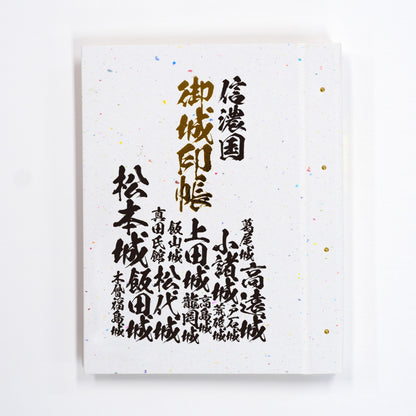 信濃国
御城印帳
葛尾城
高遠城
小諸城
戸石城
荒砥城
上田城
高島城
龍岡城
飯山城
松代城
真田氏館
飯田城
松本城
木曽福島城